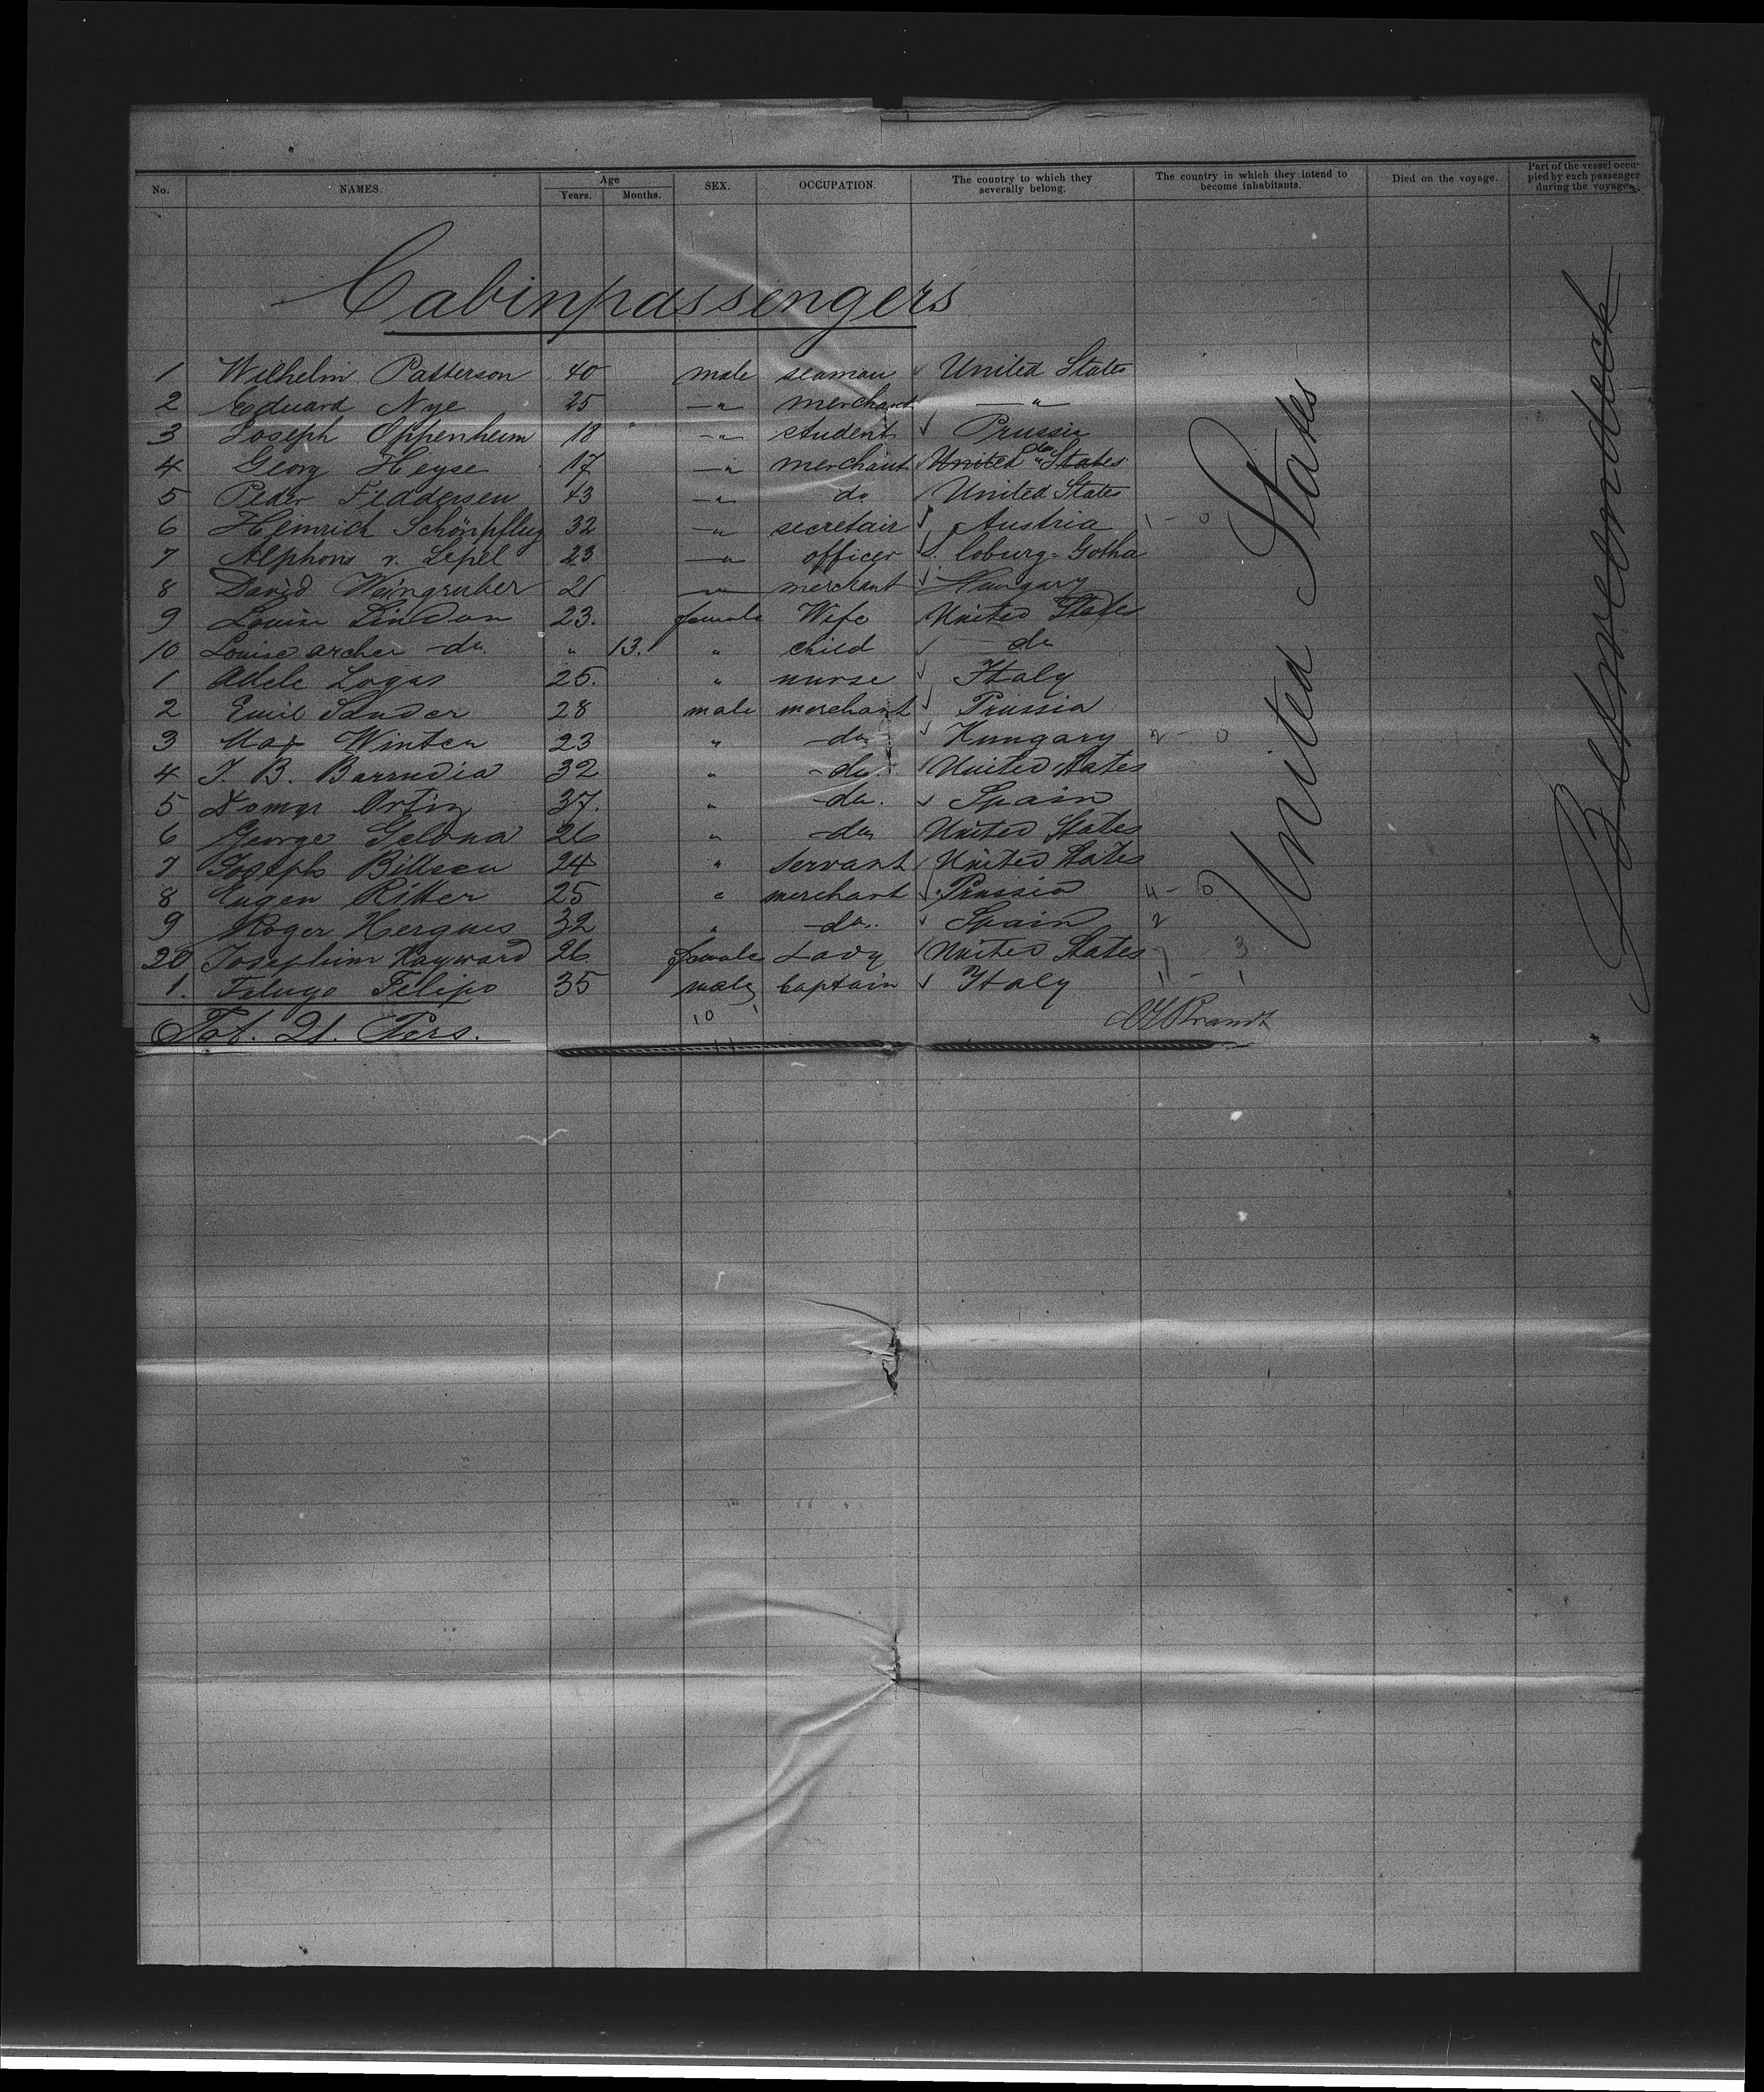 No. NAMES. Age Years. Months. SEX. OCCUPATION. The country to which they severally belong. The country in which they intend to become inhabitants. Died on the voyage. Part of the vessel occupied by each passenger during the voyage.
Cabinpassengers
1 Wilhelm Patterson 40 male seaman United States
2 Eduard Nye 25 —"— merchant —"—
3 Joseph Oppenheim 18 —"— student Prussia
4 Georg Heyse 17 —"— merchant United States do
5 Peder Feddersen 43 —"— do United States
6 Heinrich Schönpflug 32 —"— secretair Austria 1 - 0
7 Alphons v. Lepel 23 —"— officer S. Coburg-Gotha
8 David Weingruber 21 —"— merchant Hungary
9 Louise Lindon 23. female Wife United States
10 Louise archer do. " 13. " child do
1 Adele Logas 25. " nurse Italy
2 Emil Sander 28 male merchant Prussia
3 Max Winter 23 " do Hungary 2 - 0
4 J. B. Barrudia 32 " do. United States
5 Ortiz 37. " do. Spain
6 George 26 " do United States
7 Joseph Billsen 24 " Servant United States
8 Eugen Ritter 25 " merchant Prussia 4 - 0
9 Roger Hergues 32 " do. Spain 2
20 Josephine Hayward 26 female Lady United States 7 3
1. Felugo Felipo 35 male Captain Italy 1 - 1
Tot. 21. Pers. 10
United States